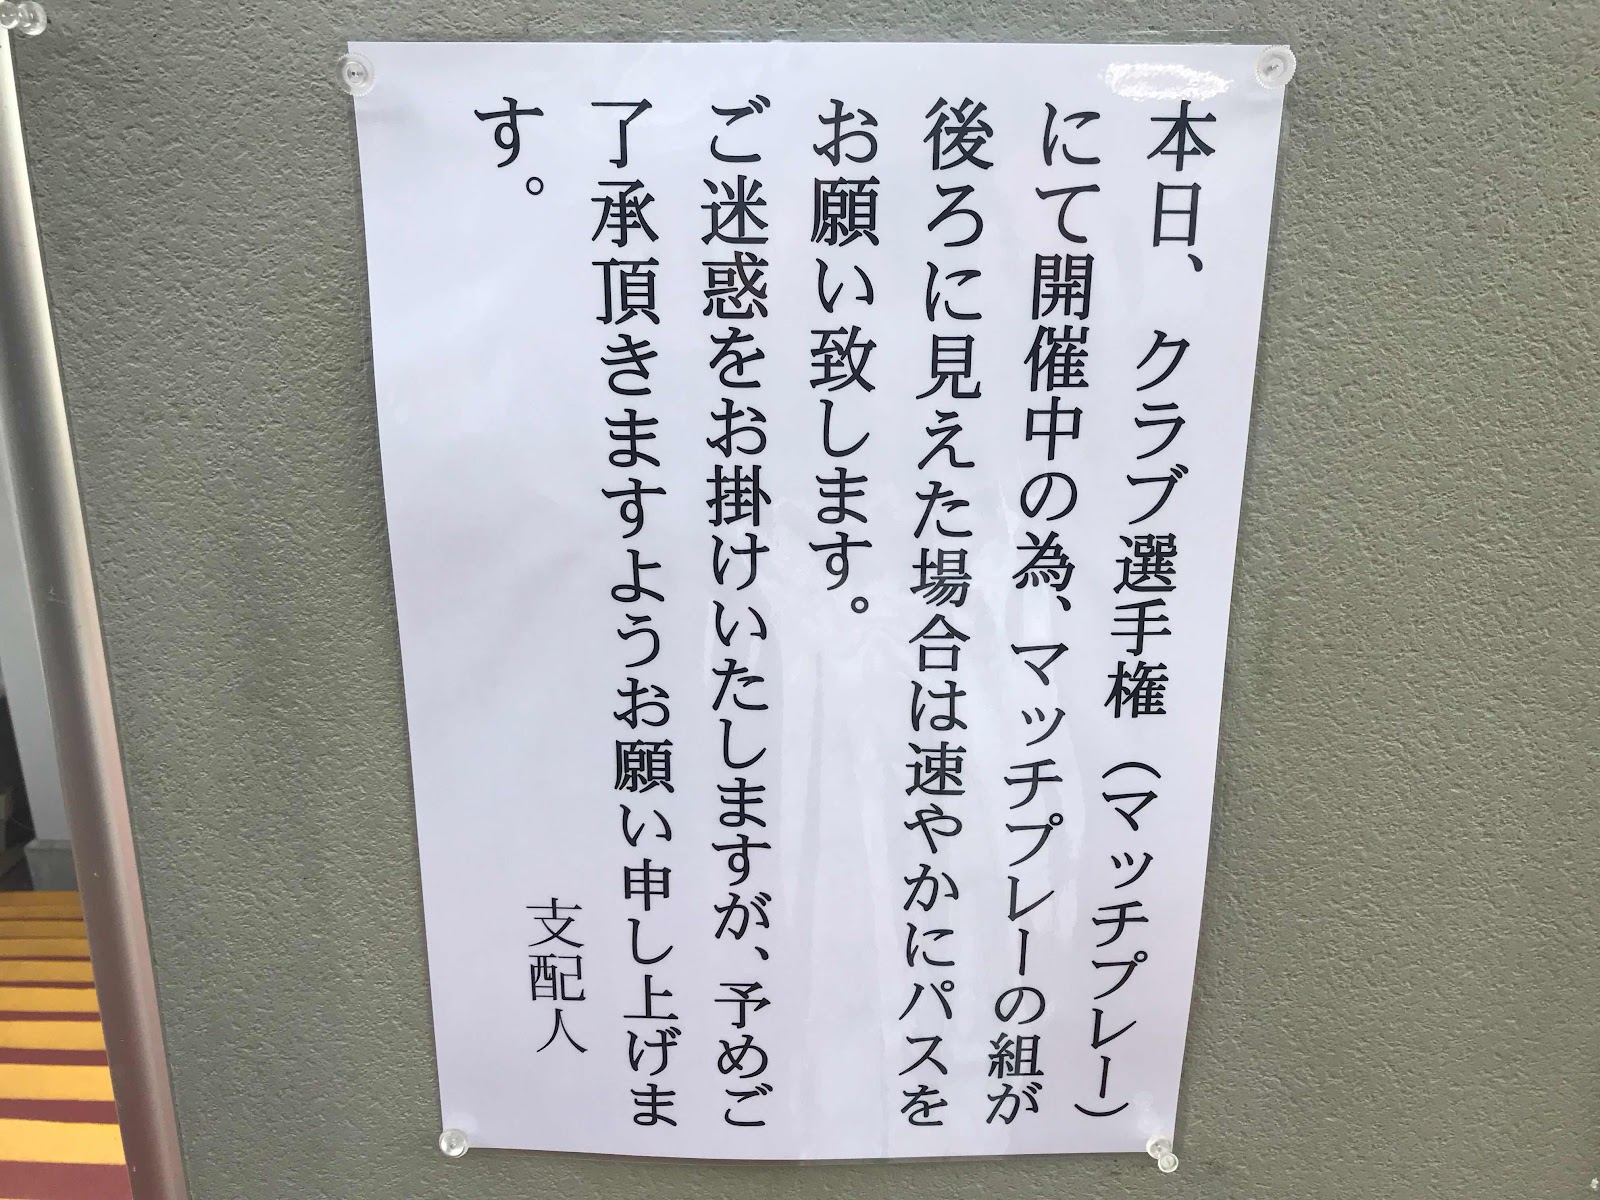 本日、クラブ選手権（マッチプレー）
にて開催中の為、マッチプレーの組が
後ろに見えた場合は速やかにパスを
お願い致します。
ご迷惑をお掛けいたしますが、予めご
了承頂きますようお願い申し上げま
す。
支配人